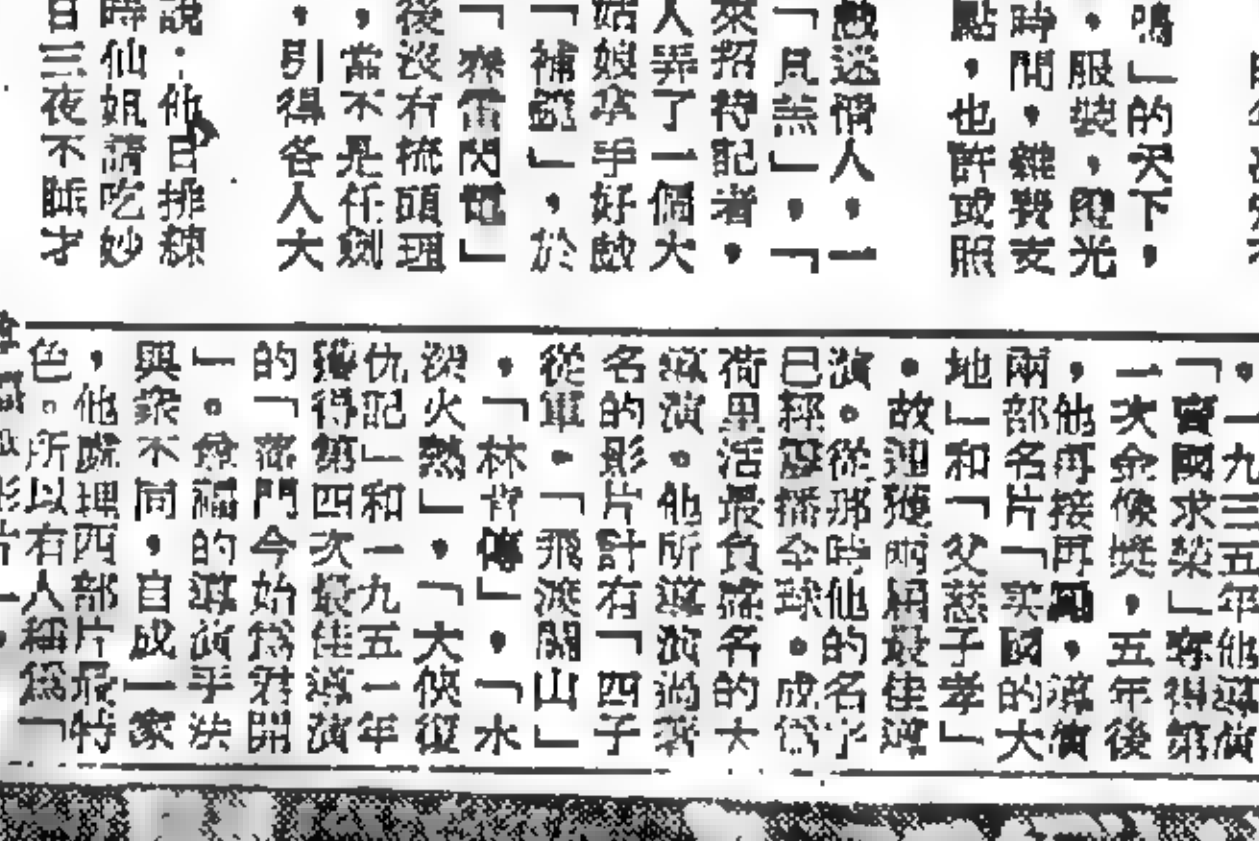 鳴」的天下，
，服裝，燈光
時間，雜費支
點，也許或照
戲迷情人，一
「貝羔」，「
來招待記者，
人弄了一個大
姑娘拿手好戲
「補鑊」，於
「來雷閃電」
後沒有梳頭理
，當不是任劍
，引得各人大
說：他日排練
時仙姐請吃妙
日三夜不睡才
。一九三五年他導演
「賣國求榮」奪得第
一次金像獎，五年後
，他再接再厲，導演
兩部名片「美國的大
地」和「父慈子孝」
。故連獲兩屆最佳導
演。從那時他的名字
已經設播全球。成爲
荷里活最負盛名的大
導演。他所導演過著
名的影片計有「四子
從軍。「飛渡關山」
，「林肯傳」，「水
深火熱」，「大俠復
仇記」和一九五一年
獲得第四次最佳導演
的「蓬門今始爲君開
」。尊福的導演手法
與衆不同，自成一家
，他處理西部片最特
色。所以有人稱爲「